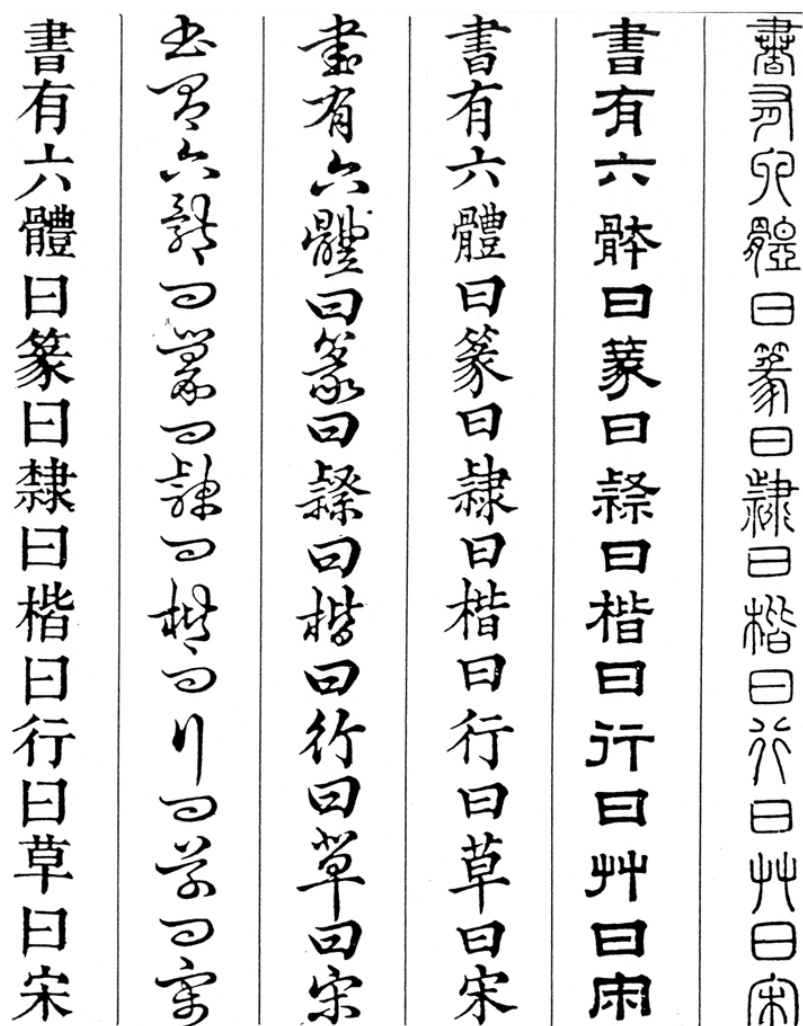 書有六體曰篆曰隸曰楷曰行曰艸曰宋
書有六体曰篆曰隸曰楷曰行曰艸曰宋
書有六體曰篆曰隸曰楷曰行曰草曰宋
書有六體曰篆曰隸曰楷曰行曰草曰宋
書有六體曰篆曰隸曰楷曰行曰草曰宋
書有六體曰篆曰隸曰楷曰行曰草曰宋